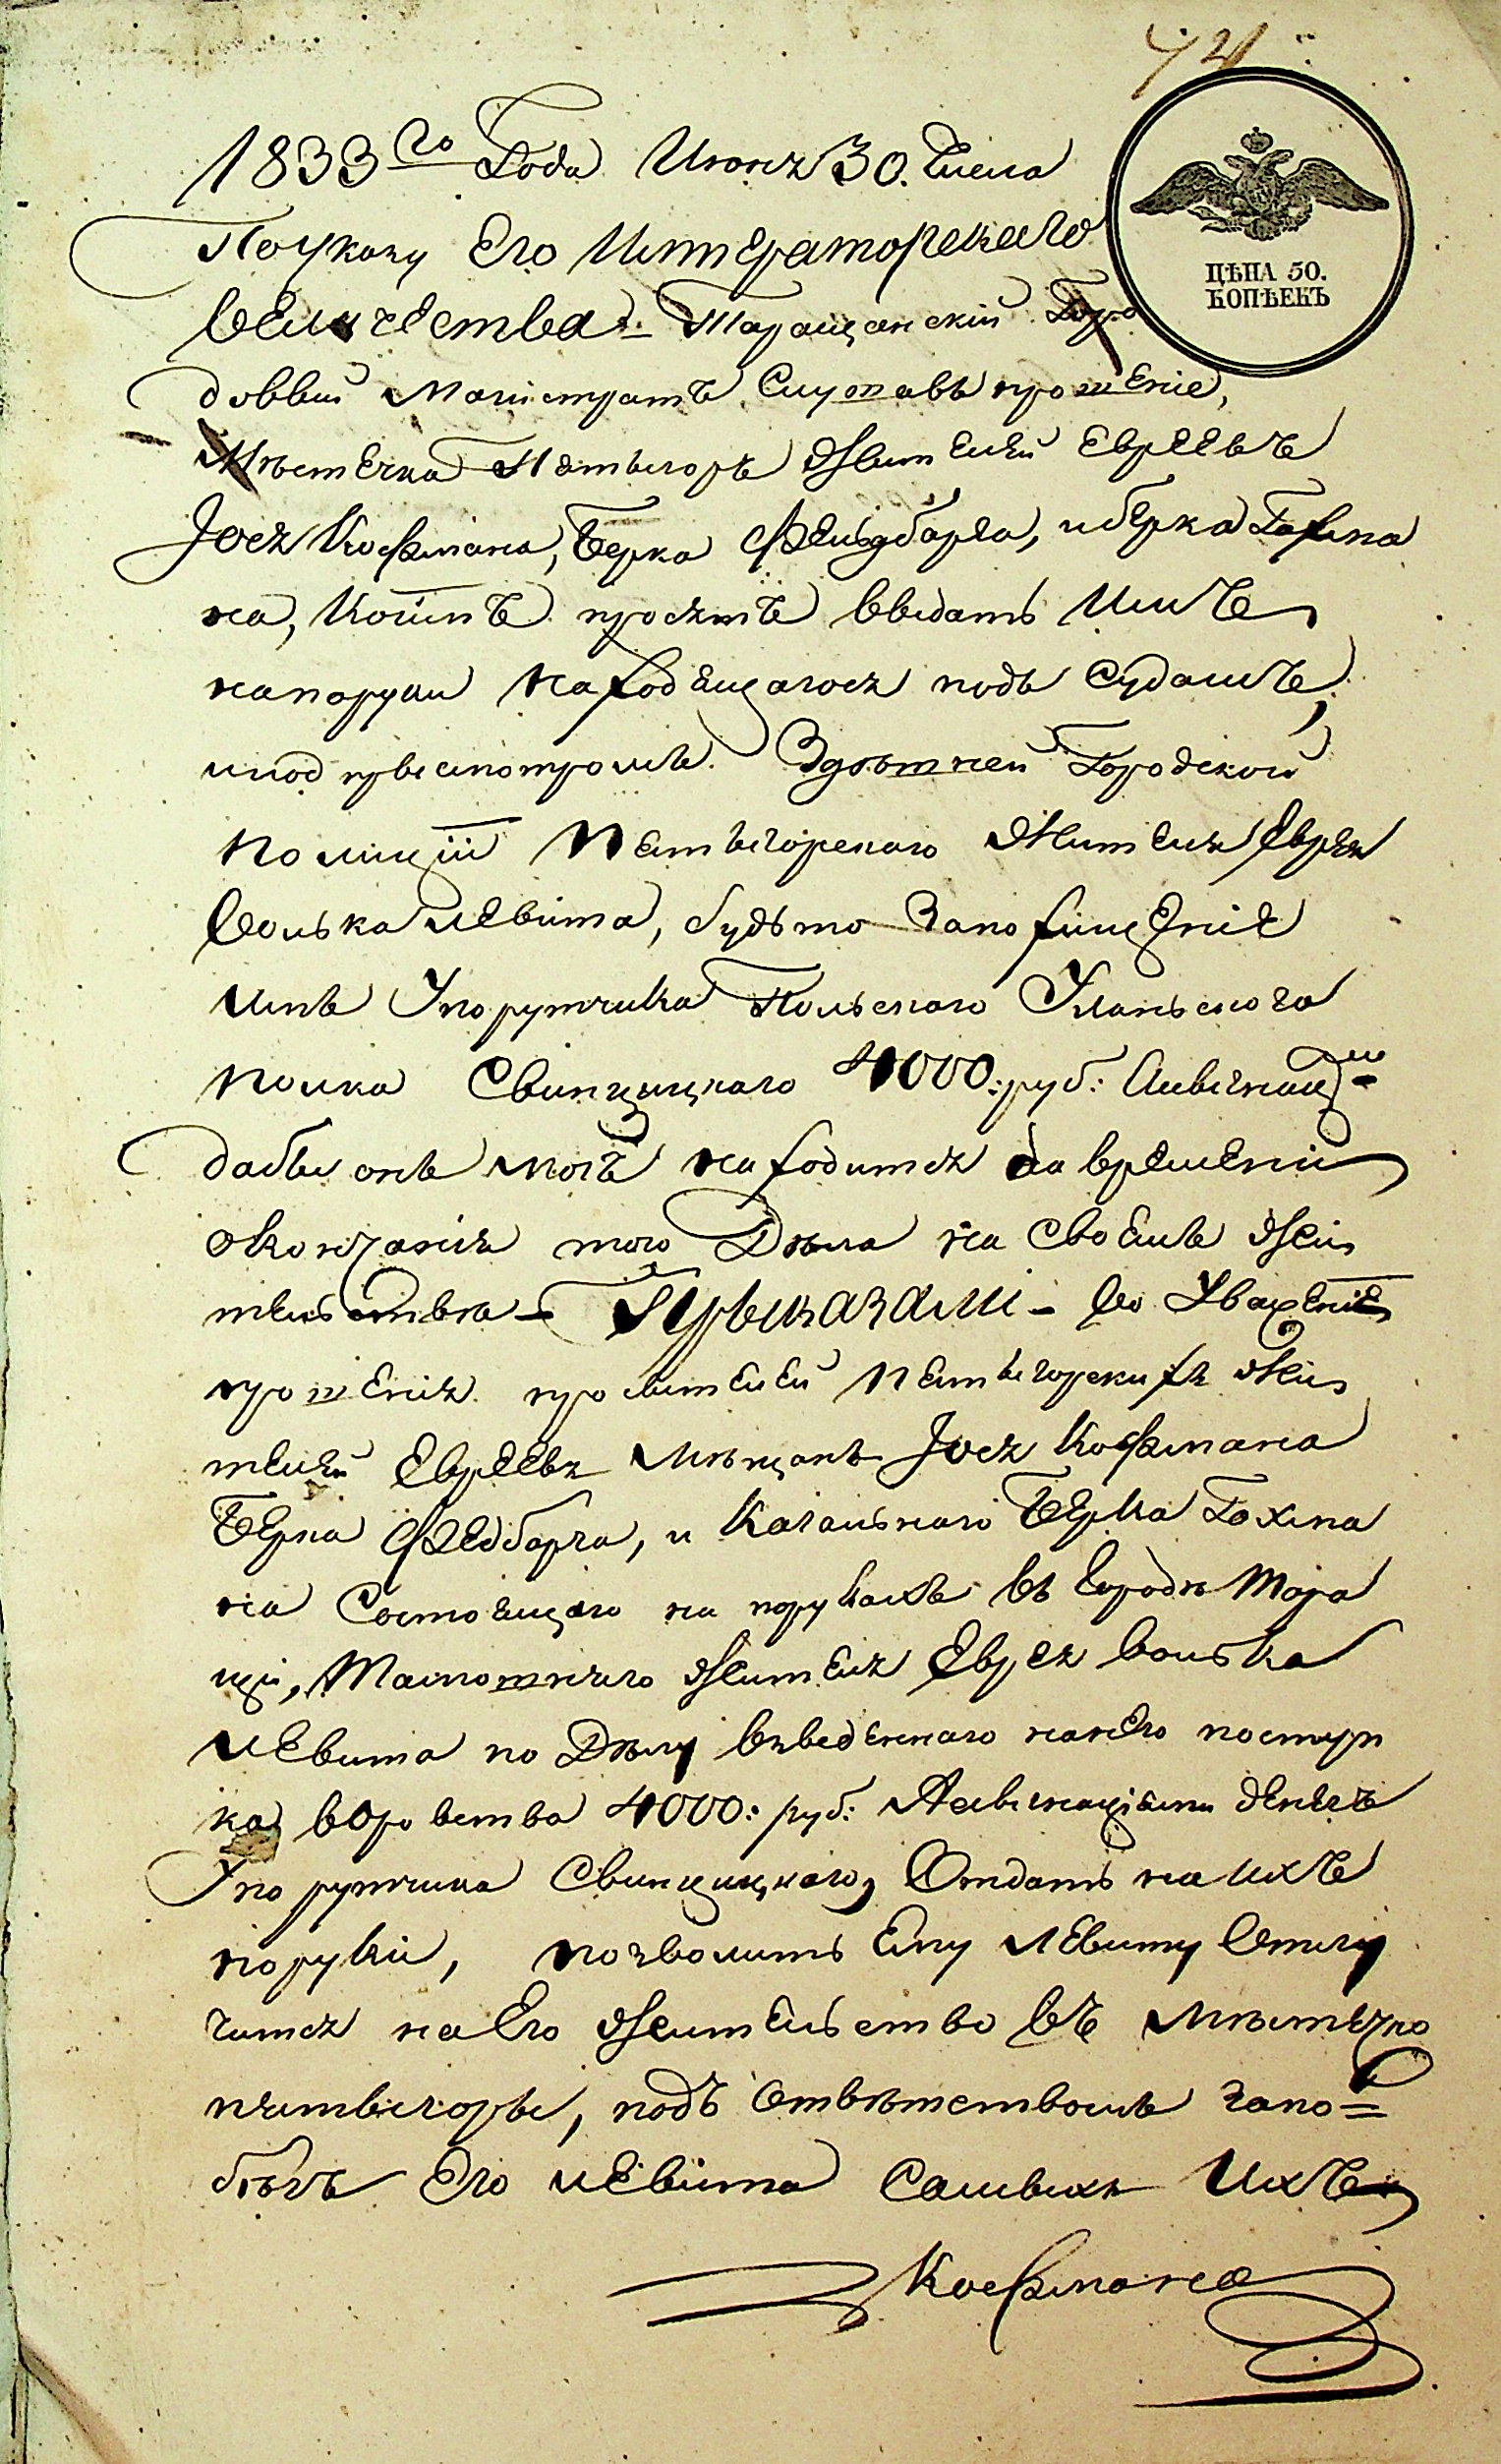 1833го Года Июня 30. Числа
ЦѢНА 50.
КОПѢЕКЪ
По указу Его Императорскаго
величества Таращанский Горо
доввий Магистратъ Слушавъ прошение,
Мѣстечка Пятыгоръ Жителей Евреевъ
Іося Кофмана, Берка Фельдбарга, и берка Гохма
на, коимъ просятъ ввидать Имъ
на поруки находящагося подъ Судомъ,
и под присмотромъ Здѣшней Городской
Полиціи Пятыгорскаго Жителя Еврея
Волька левита, будьто за похищеніе
имъ У порутчика Польскаго Уланьского
Полка Свинцицкаго 4000: руб: Асыгнац:
дабы онъ могъ находится да времени
окончания того Дѣла на своемъ жи
тельствѣ Приказали Во Уваженіе
прошения просителей Пятыгорскихъ Жи
телей Евреевъ Мѣщанъ Іося Кофмана
Берка Федбарга, и Кагальнаго Берка Гохма
на Состоящаго на порукахъ въ городѣ Тара
щи, Тамошняго жителя Еврея Волька
левита по Дѣлу взведеннаго на него поступ
ка воровства 4000: руб: Асыгнаціями денегъ
У порутчика Свинцицкаго, Отдать на ихъ
поруки, позволить Ему Левиту Отлу
чится на Его жительство въ Мѣстечко
пятыгоры, подъ отвѣтствомъ запо=
бѣгъ Его левита самвихъ Ихъ
Кофмана